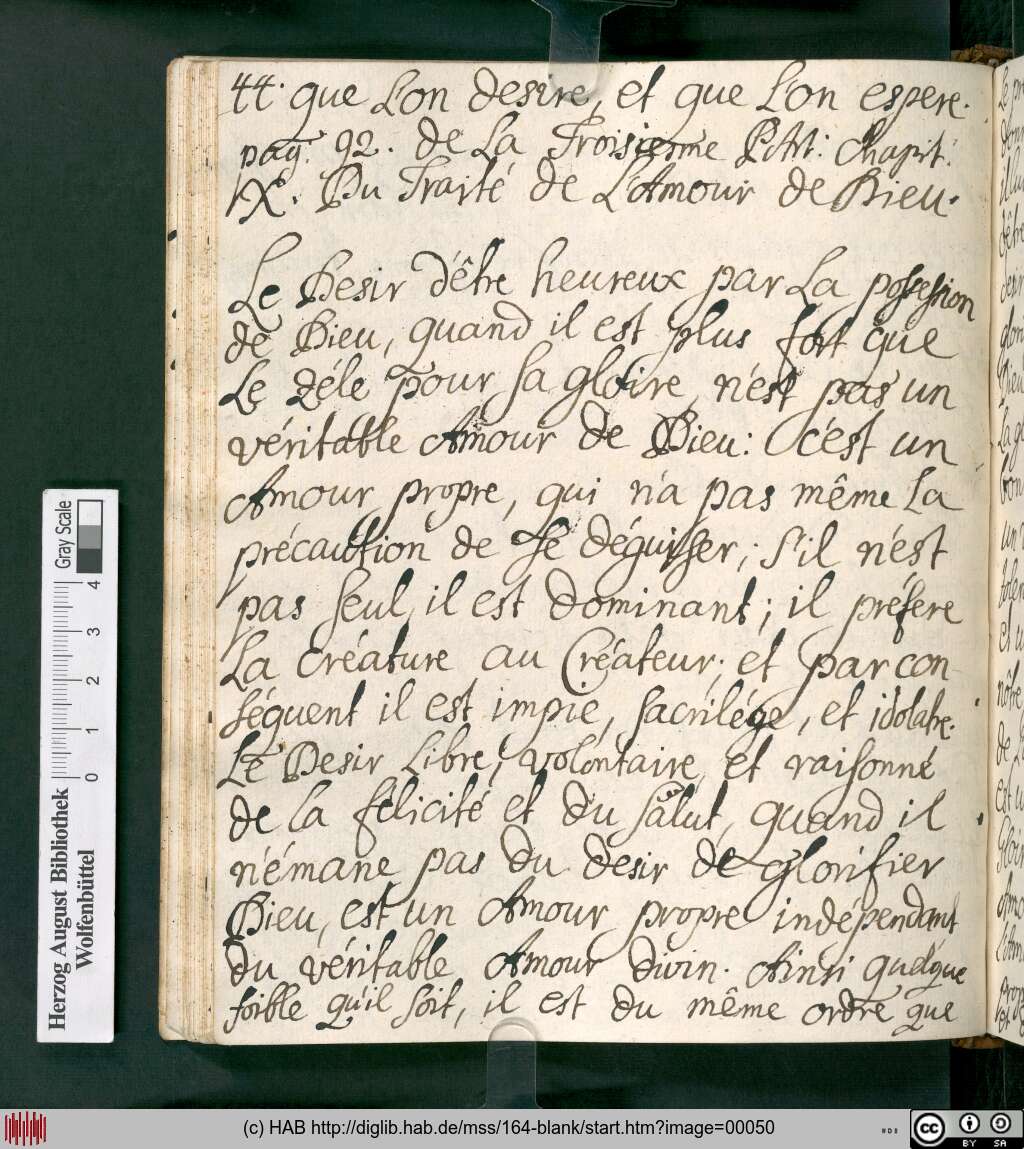 44. que L'on desire, et que L'on espere.
pag. 92. de La Troisieme Part: Chapit:
IX. Du Traité de L'Amour de Dieu.
Le Desir d'être heureux par La possession
de Dieu, quand il est plus fort que
Le zéle pour sa gloire, n'est pas un
véritable Amour de Dieu: c'est un
Amour propre, qui n'a pas même La
précaution de se déguiser; s'il n'est
pas seul, il est dominant; il préfere
La créature au Créateur; et par con-
séquent il est impie, sacrilége, et idolatre.
Le Desir Libre, volontaire, et raisonné
de La félicité et du salut, quand il
n'émane pas du desir de glorifier
Dieu, est un Amour propre indépendant
du véritable Amour divin. Ainsi quelque
foible qu'il soit, il est du même ordre que
Gray Scale
4 3 2 1 0
Herzog August Bibliothek
Wolfenbüttel
(c) HAB http://diglib.hab.de/mss/164-blank/start.htm?image=00050
cc BY SA